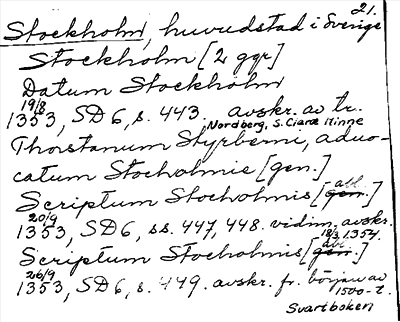 21.
Stockholm, huvudstad i Sverige
Stockholm [2 ggr]
Datum Stockholm
19/8
1353, SD 6, s. 443. avskr. av tr.
Nordberg, S. Clarae Minne
Thorstanum Styrberni, aduo-
catum Stocholmie [gen.]
Scriptum Stocholmis [gen. abl.]
20/9
1353, SD 6, ss. 447, 448. vidim. avskr.
18/3 1354.
Scriptum Stocholmis [gen. abl.]
26/9
1353, SD 6, s. 449. avskr. fr. början av
1500-t.
Svartboken